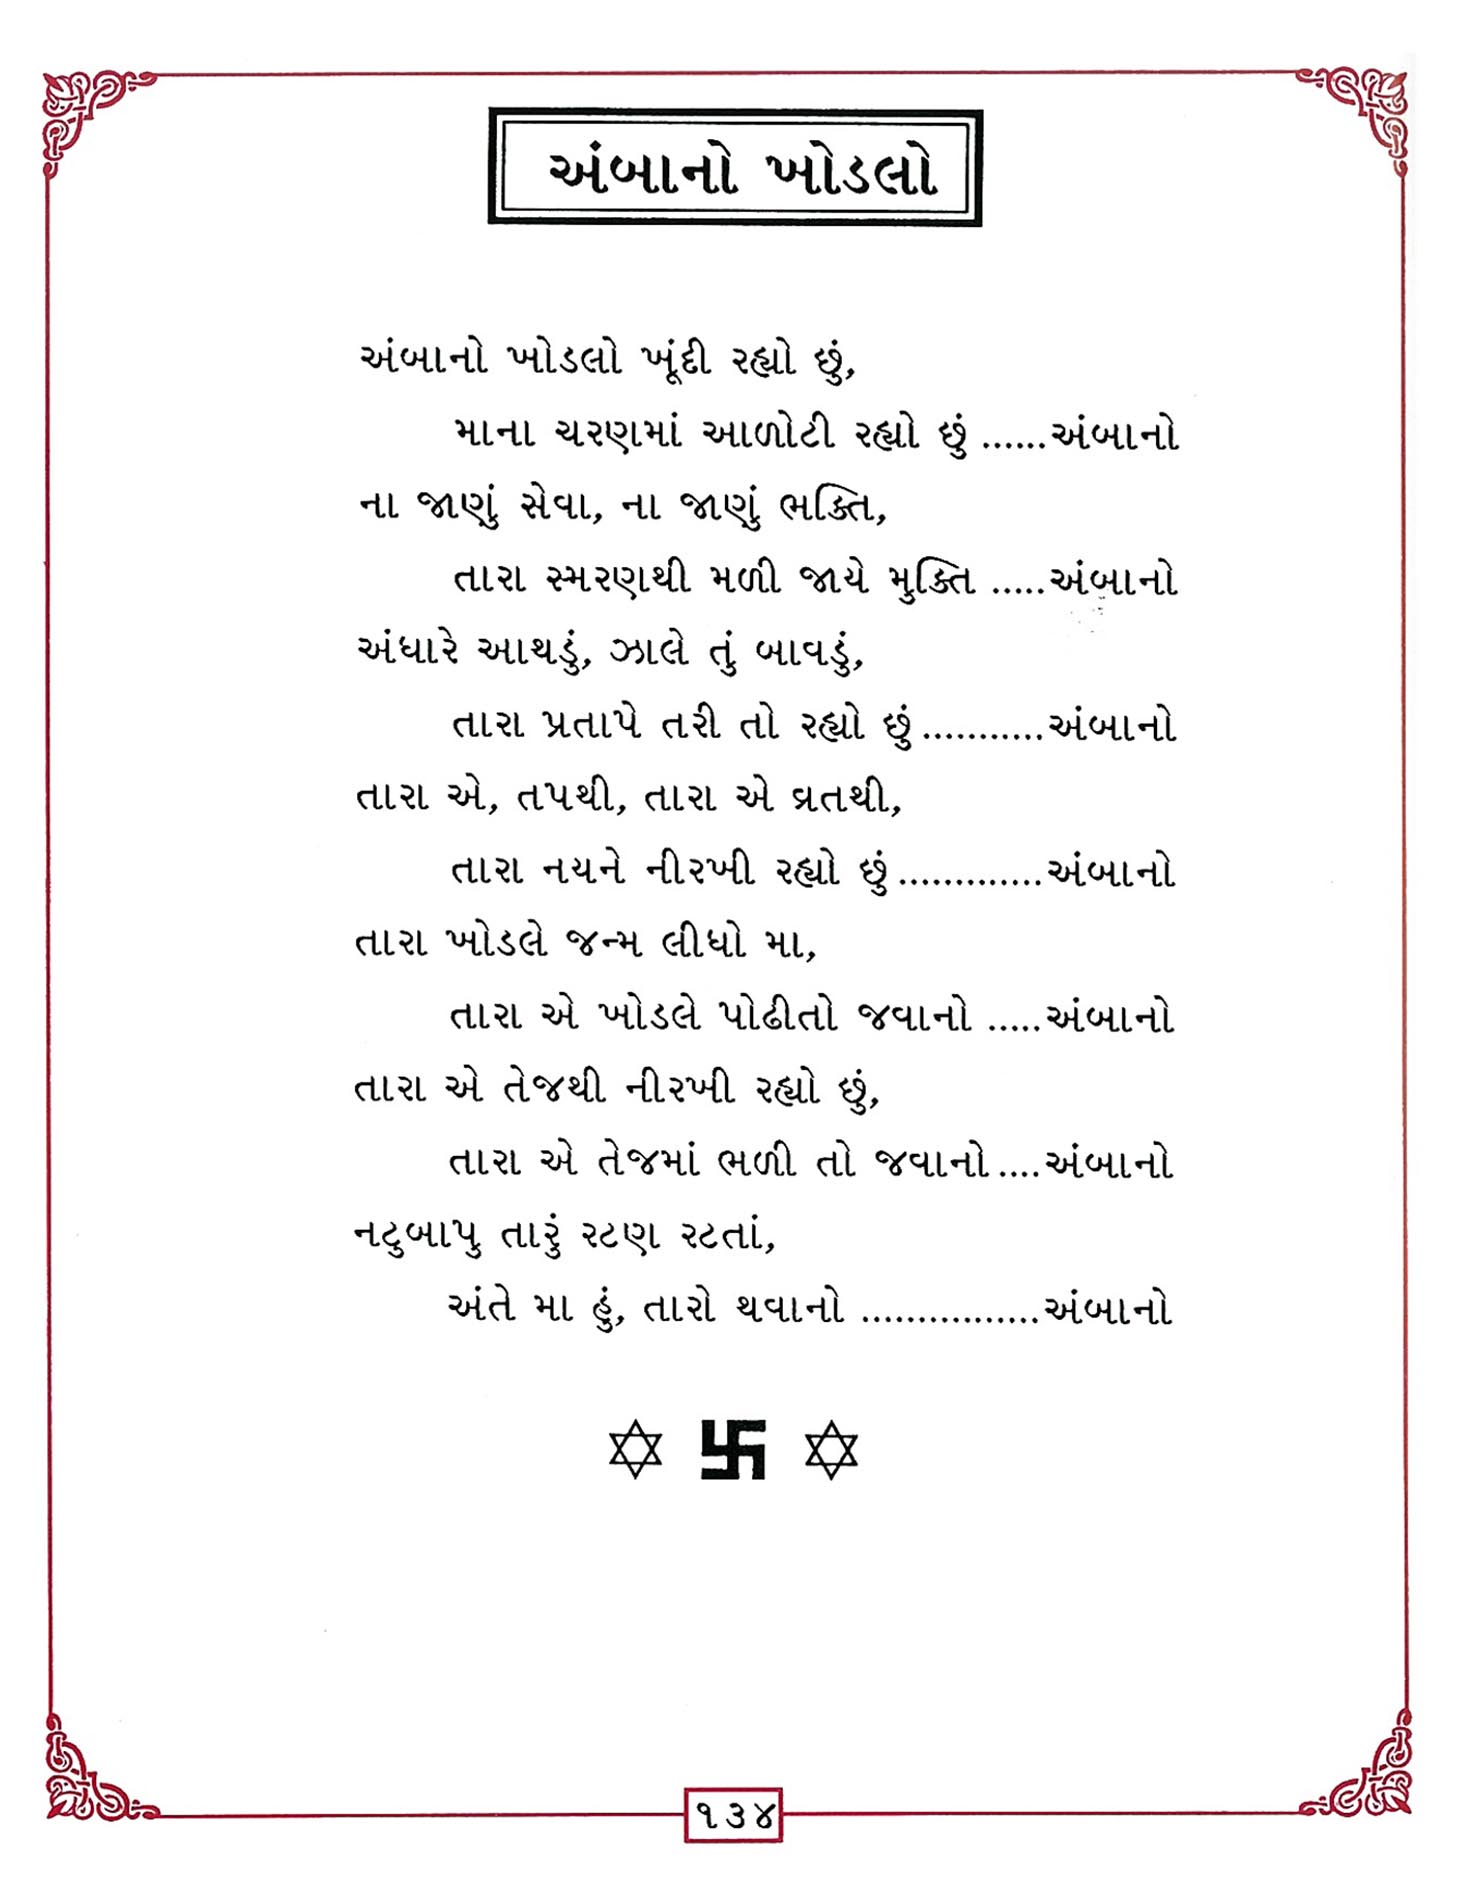 અંબાનો ખોડલો
અંબાનો ખોડલો ખૂંદી રહ્યો છું,
માના ચરણમાં આળોટી રહ્યો છું ......અંબાનો
ના જાણું સેવા, ના જાણું ભક્તિ,
તારા સ્મરણથી મળી જાયે મુક્તિ .....અંબાનો
અંધારે આથડું, ઝાલે તું બાવડું,
તારા પ્રતાપે તરી તો રહ્યો છું...........અંબાનો
તારા એ, તપથી, તારા એ વ્રતથી,
તારા નયને નીરખી રહ્યો છું.............અંબાનો
તારા ખોડલે જન્મ લીધો મા,
તારા એ ખોડલે પોઢીતો જવાનો .....અંબાનો
તારા એ તેજથી નીરખી રહ્યો છું,
તારા એ તેજમાં ભળી તો જવાનો....અંબાનો
નટુબાપુ તારું રટણ રટતાં,
અંતે મા હું, તારો થવાનો ................અંબાનો
૧૩૪